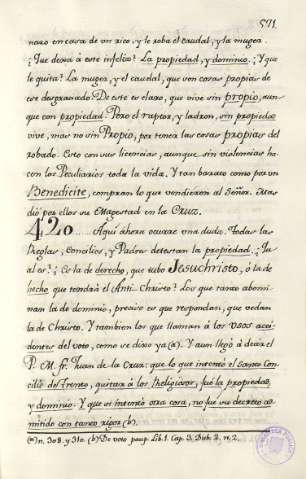 571
naro en casa de un rico, y le roba el caudal, y la muger.
¿Que dexará á este infeliz? La propiedad, y dominio. ¿Y que
le quita? La muger, y el caudal, que son cosas propias de
ese desgraciado. De este es claro, que vive sin propio, aun-
que con propiedad. Pero el raptor, y ladron, sin propiedad
vive, mas no sin Propio, por tener las cosas propias del
robado. Esto con sus licencias, aunque sin violencias ha-
cen los Peculiarios toda la vida. Y tan barato como por un
Benedicite, compran lo que vendieron al Señor. Mas
dió por ellos su Magestad en la Cruz.
420 Aqui ahora ocurre una duda. Todas las
Reglas, Concilios, y Padres detestan la propiedad.
es? ¿Es la de derecho, que tubo Jesuchristo, ó la de
hecho que tendrá el Anti-Christo? Los que tanto abomi-
nan la de dominio, preciso es que respondan, que vedan
la de Christo. Y tambien los que llaman á los usos acci-
dentes del voto, como se dixo ya (a). Y aun llegó á decir el
P. M. Fr. Juan de la Cruz: que lo que intentó el Santo Con-
cilio de Trento, quitar á los Religiosos, fué la propiedad,
y dominio. Y que si intentó otra cosa, no fue su decreto ad-
mitido con tanto rigor (b).
(a) n. 308. y 310. (b) De voto paup. Lib. 1. Cap. 3. Dub. 2. n. 2.